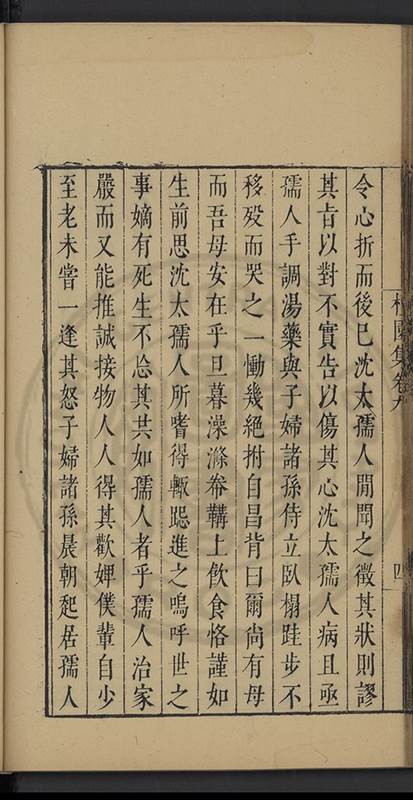 令心折而後已沈太孺人閒聞之徵其狀則謬
其旨以對不實告以傷其心沈太孺人病且亟
孺人手調湯藥與子婦諸孫侍立臥榻跬步不
移歿而哭之一慟幾絕拊自昌背曰爾尚有母
而吾母安在乎旦暮澡滌帣鞲上飲食恪謹如
生前思沈太孺人所嗜得輒跽進之嗚呼世之
事嫡有死生不忩其共如孺人者乎孺人治家
嚴而又能推誠接物人人得其歡婢僕輩自少
至老未嘗一逢其怒子婦諸孫晨朝起居孺人
集卷九
四